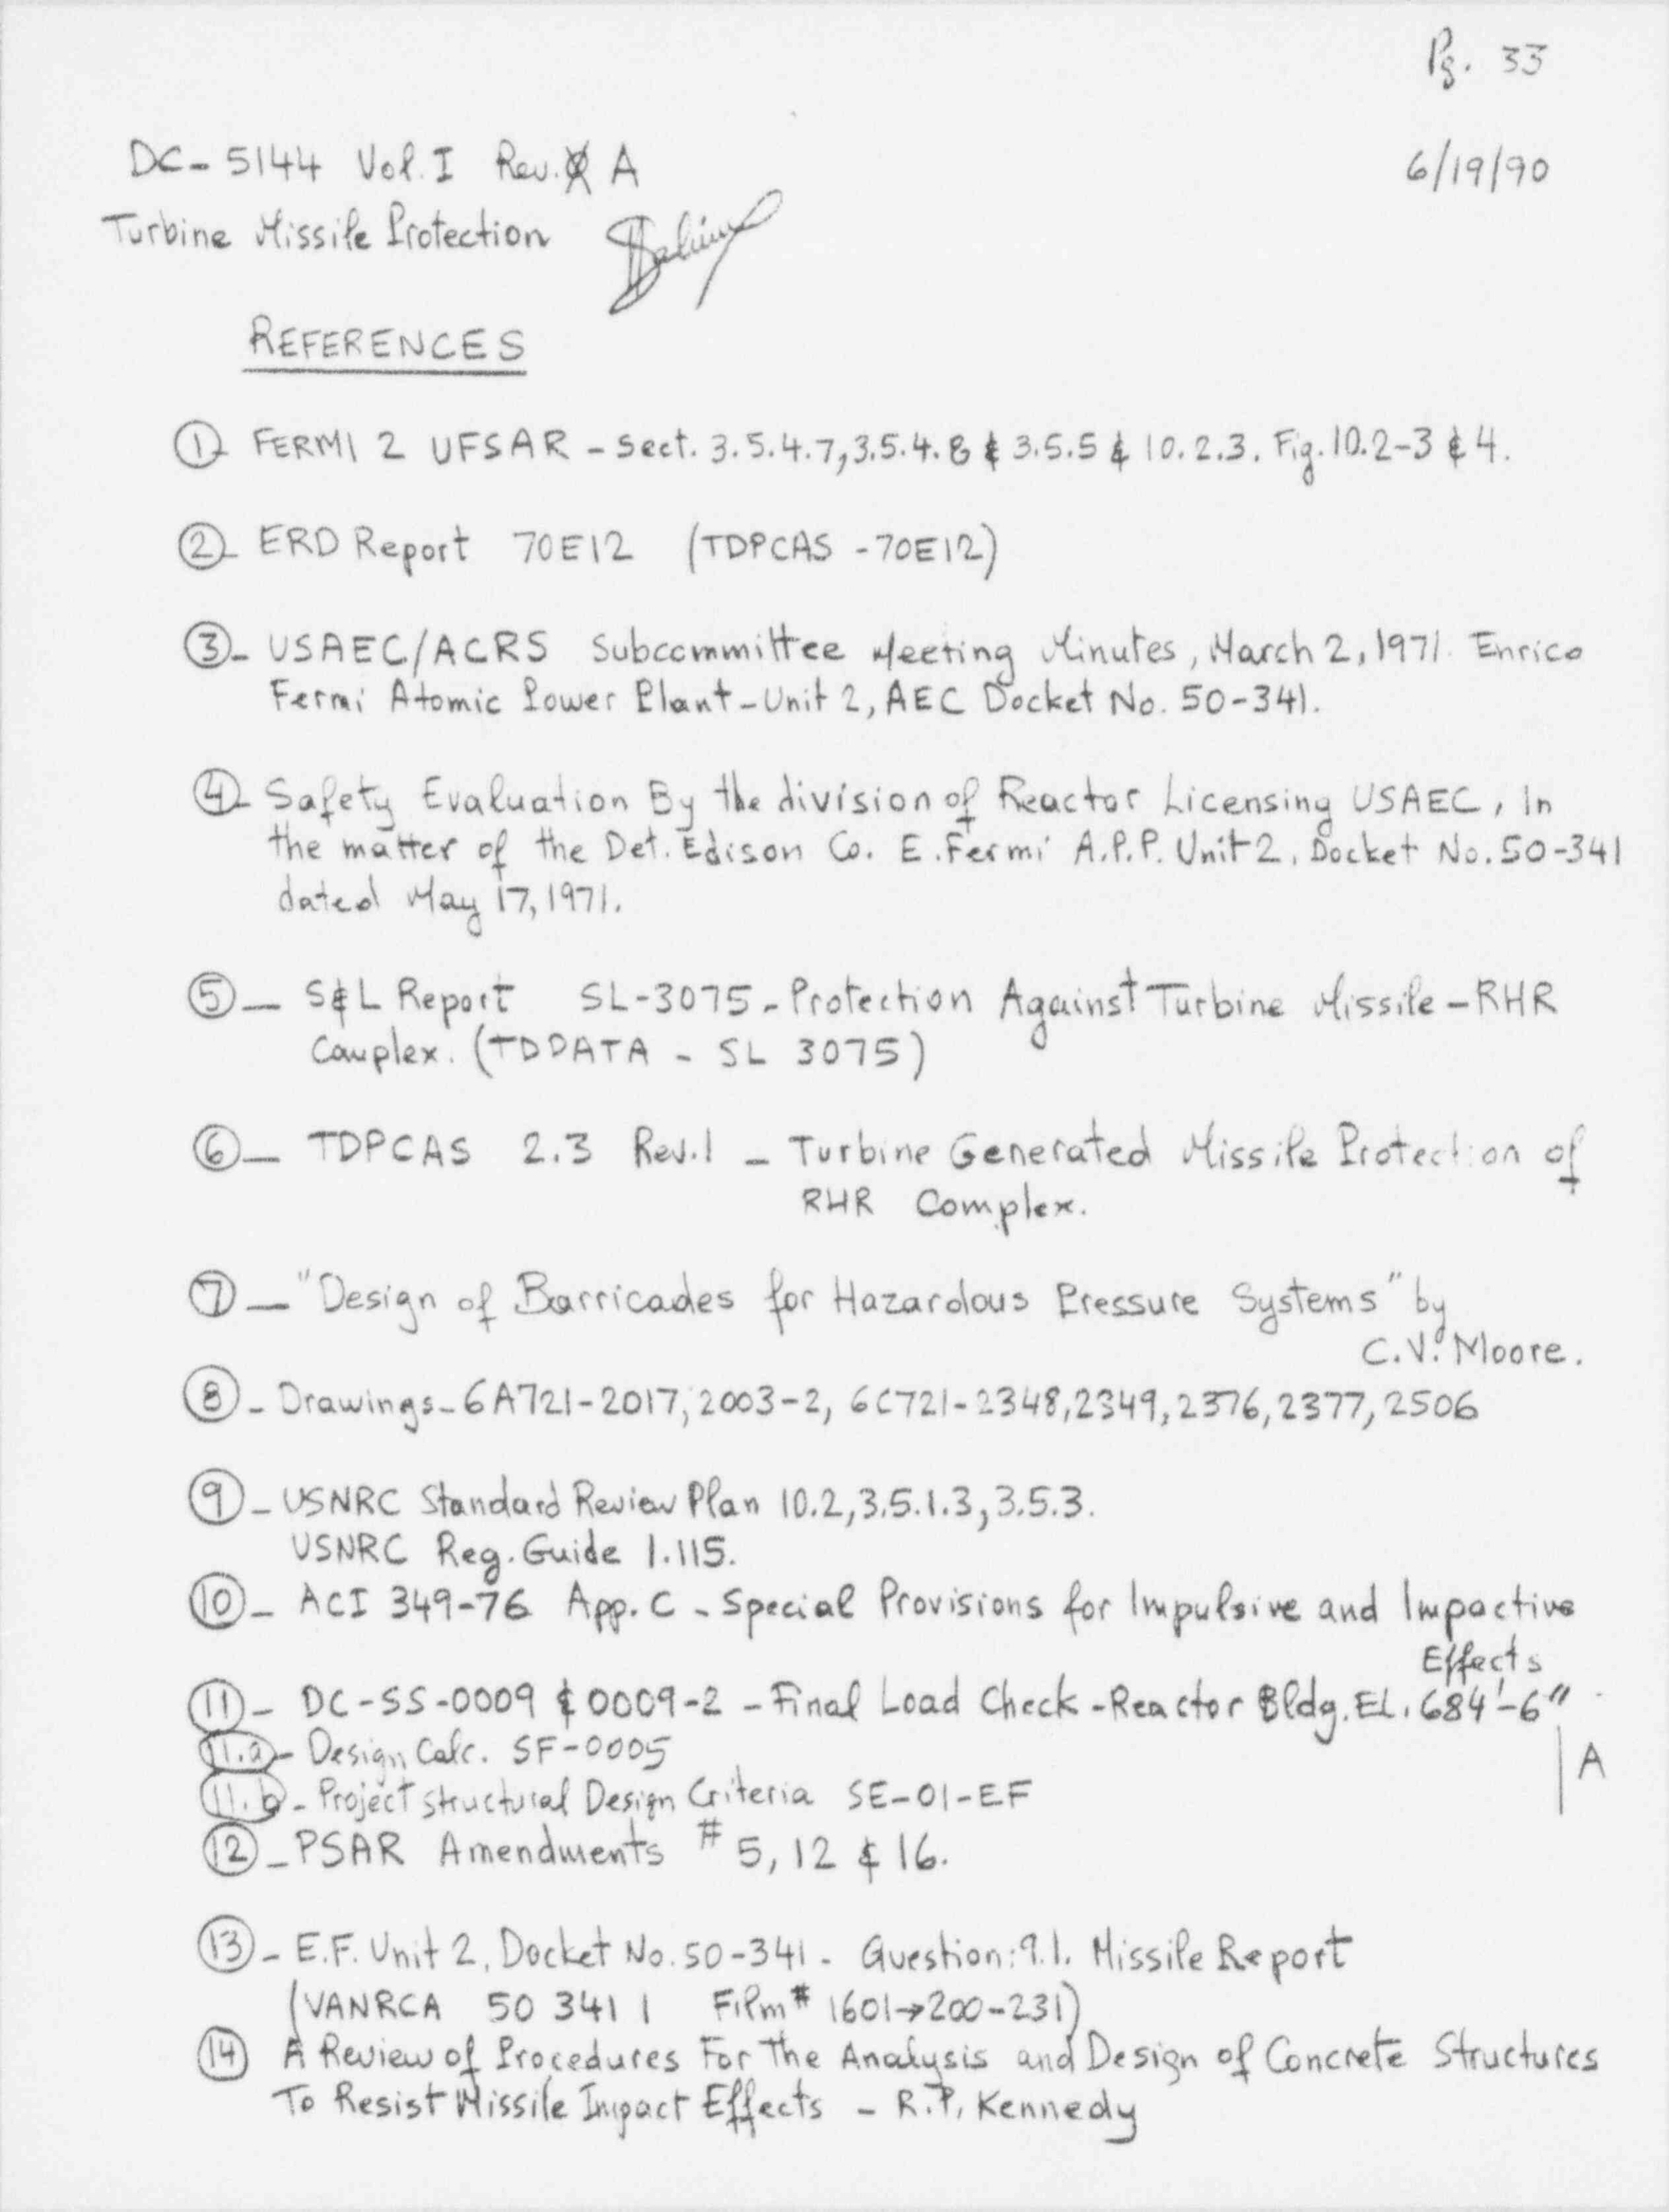 Pg. 33
DC- 5144 Vol. I Rev. A
6/19/90
Turbine Missile Protection
REFERENCES
① FERMI 2 UFSAR - Sect. 3.5.4.7, 3.5.4.8 & 3.5.5 & 10.2.3. Fig. 10.2-3 & 4.
②- ERD Report 70E12 (TDPCAS - 70E12)
③- USAEC/ACRS Subcommittee Meeting Minutes, March 2, 1971. Enrico
Fermi Atomic Power Plant - Unit 2, AEC Docket No. 50-341.
④- Safety Evaluation By the division of Reactor Licensing USAEC, In
the matter of the Det. Edison Co. E. Fermi A.P.P. Unit 2, Docket No. 50-341
dated May 17, 1971.
⑤- S&L Report SL-3075 - Protection Against Turbine Missile - RHR
Complex. (TDDATA - SL 3075)
⑥- TDPCAS 2.3 Rev. 1 - Turbine Generated Missile Protection of
RHR Complex.
⑦- "Design of Barricades for Hazardous Pressure Systems" by
C.V. Moore.
⑧- Drawings - 6A721-2017, 2003-2, 6C721-2348, 2349, 2376, 2377, 2506
⑨- USNRC Standard Review Plan 10.2, 3.5.1.3, 3.5.3.
USNRC Reg. Guide 1.115.
⑩- ACI 349-76 App. C - Special Provisions for Impulsive and Impactive
Effects
⑪- DC-SS-0009 & 0009-2 - Final Load Check - Reactor Bldg. EL. 684'-6"
11.a- Design Calc. SF-0005
A
11.b- Project structural Design Criteria SE-01-EF
⑫- PSAR Amendments # 5, 12 & 16.
⑬- E.F. Unit 2, Docket No. 50-341 - Question: 9.1. Missile Report
(VANRCA 50 341 1 Film # 1601→200-231)
⑭ A Review of Procedures For The Analysis and Design of Concrete Structures
To Resist Missile Impact Effects - R.P. Kennedy